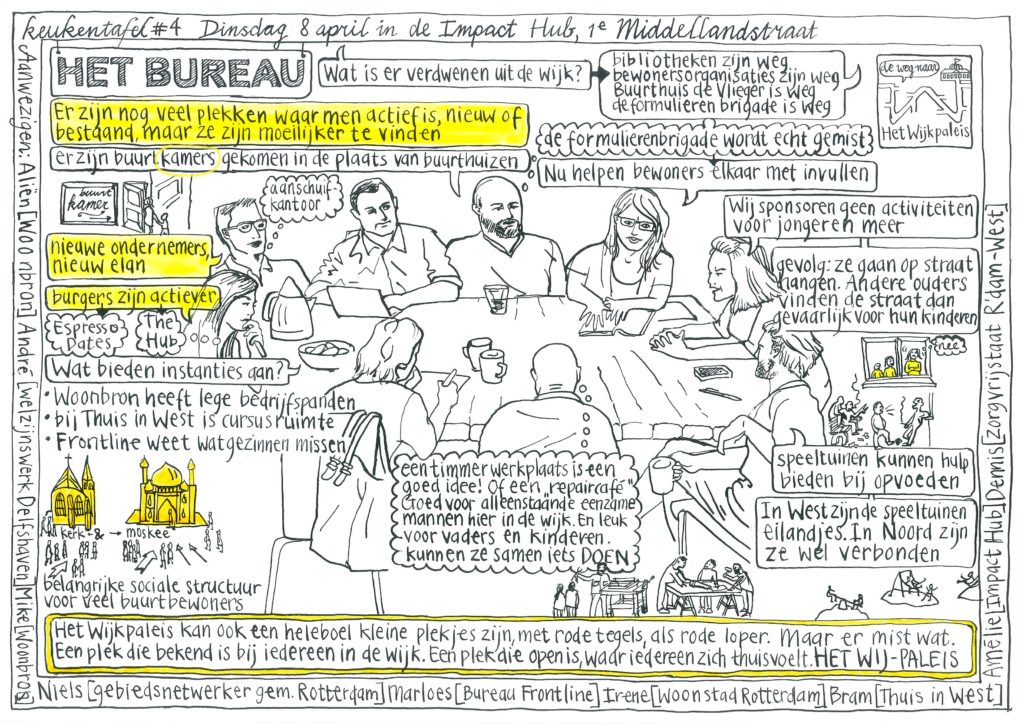 keukentafel #4 Dinsdag 8 april in de Impact Hub, 1e Middellandstraat
HET BUREAU
Wat is er verdwenen uit de wijk?
bibliotheken zijn weg
bewonersorganisaties zijn weg
Buurthuis de Vlieger is weg
de formulieren brigade is weg
de weg naar
Het Wijkpaleis
Er zijn nog veel plekken waar men actief is, nieuw of
bestaand, maar ze zijn moeilijker te vinden
de formulierenbrigade wordt echt gemist
er zijn buurtkamers gekomen in de plaats van buurthuizen
Nu helpen bewoners elkaar met invullen
buurt
kamer
aanschuif-
kantoor
Wij sponsoren geen activiteiten
voor jongeren meer
nieuwe ondernemers,
nieuw elan
gevolg: ze gaan op straat
hangen. Andere ouders
vinden de straat dan
gevaarlijk voor hun kinderen
burgers zijn actiever
Espresso
Dates
The
Hub
nee!
Wat bieden instanties aan?
• Woonbron heeft lege bedrijfspanden
• bij Thuis in West is cursusruimte
• Frontline weet wat gezinnen missen
een timmerwerkplaats is een
goed idee! Of een "repaircafé"
Goed voor alleenstaande eenzame
mannen hier in de wijk. En leuk
voor vaders en kinderen.
kunnen ze samen iets DOEN
speeltuinen kunnen hulp
bieden bij opvoeden
In West zijn de speeltuinen
eilandjes. In Noord zijn
ze wel verbonden
kerk- & → moskee
belangrijke sociale structuur
voor veel buurtbewoners
Het Wijkpaleis kan ook een heleboel kleine plekjes zijn, met rode tegels, als rode loper. Maar er mist wat.
Een plek die bekend is bij iedereen in de wijk. Een plek die open is, waar iedereen zich thuisvoelt. HET WIJ-PALEIS
Aanwezigen: Aliën [Woonbron] André [welzijnswerk Delfshaven] Mike [Woonbron]
Niels [gebiedsnetwerker gem. Rotterdam] Marloes [Bureau Frontline] Irene [Woonstad Rotterdam] Bram [Thuis in West]
Amélie [Impact Hub] Dennis [zorgvrijstaat R'dam-West]